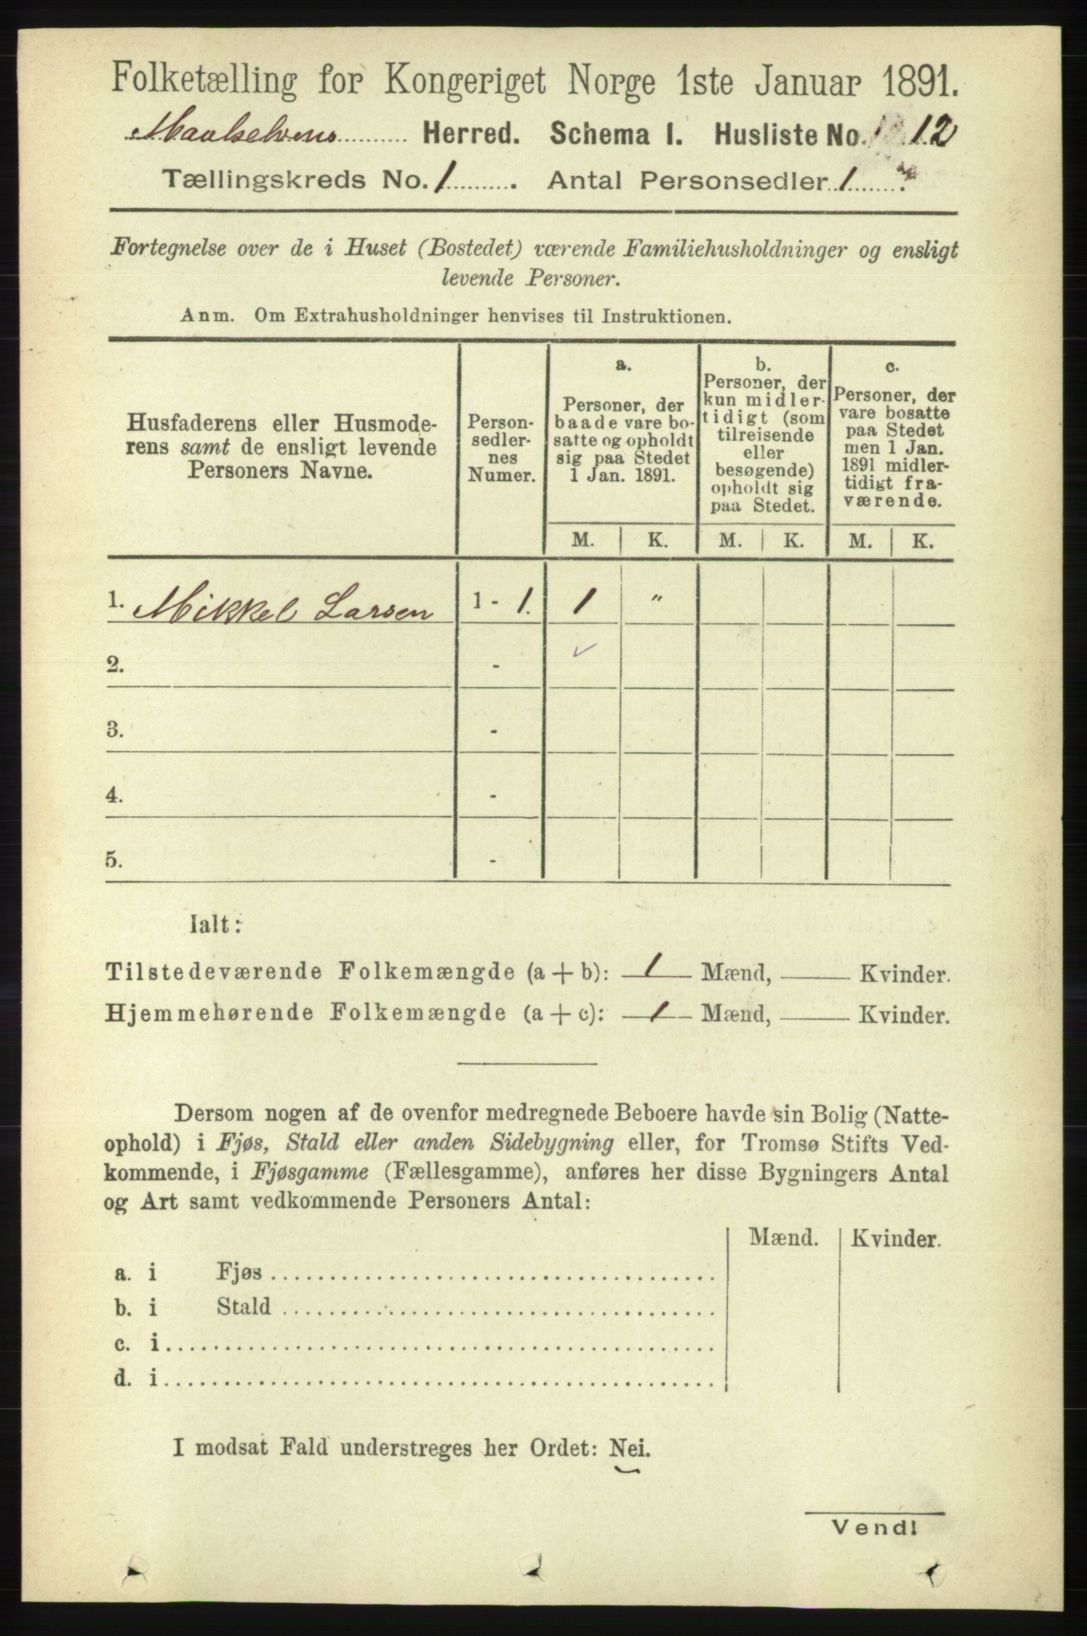 Folketælling for Kongeriget Norge 1ste Januar 1891.
Maalselvens Herred. Schema I. Husliste No. 12
Tællingskreds No. 1. Antal Personsedler 1.
Fortegnelse over de i Huset (Bostedet) værende Familiehusholdninger og ensligt
levende Personer.
Anm. Om Extrahusholdninger henvises til Instruktionen.
Husfaderens eller Husmode-
rens samt de ensligt levende
Personers Navne.
Person-
sedler-
nes
Numer.
a.
Personer, der
baade vare bo-
satte og opholdt
sig paa Stedet
1 Jan. 1891.
b.
Personer, der
kun midler-
tidigt (som
tilreisende
eller
besøgende)
opholdt sig
paa Stedet.
c.
Personer, der
vare bosatte
paa Stedet
men 1 Jan.
1891 midler-
tidigt fra-
værende.
M. K. M. K. M. K.
1. Mikkel Larsen 1 - 1. 1 "
2. - ✓
3. -
4. -
5. -
Ialt:
Tilstedeværende Folkemængde (a + b): 1 Mænd, Kvinder.
Hjemmehørende Folkemængde (a + c): 1 Mænd, Kvinder.
Dersom nogen af de ovenfor medregnede Beboere havde sin Bolig (Natte-
ophold) i Fjøs, Stald eller anden Sidebygning eller, for Tromsø Stifts Ved-
kommende, i Fjøsgamme (Fællesgamme), anføres her disse Bygningers Antal
og Art samt vedkommende Personers Antal:
Mænd. Kvinder.
a. i Fjøs
b. i Stald
c. i
d. i
I modsat Fald understreges her Ordet: Nei.
Vend!